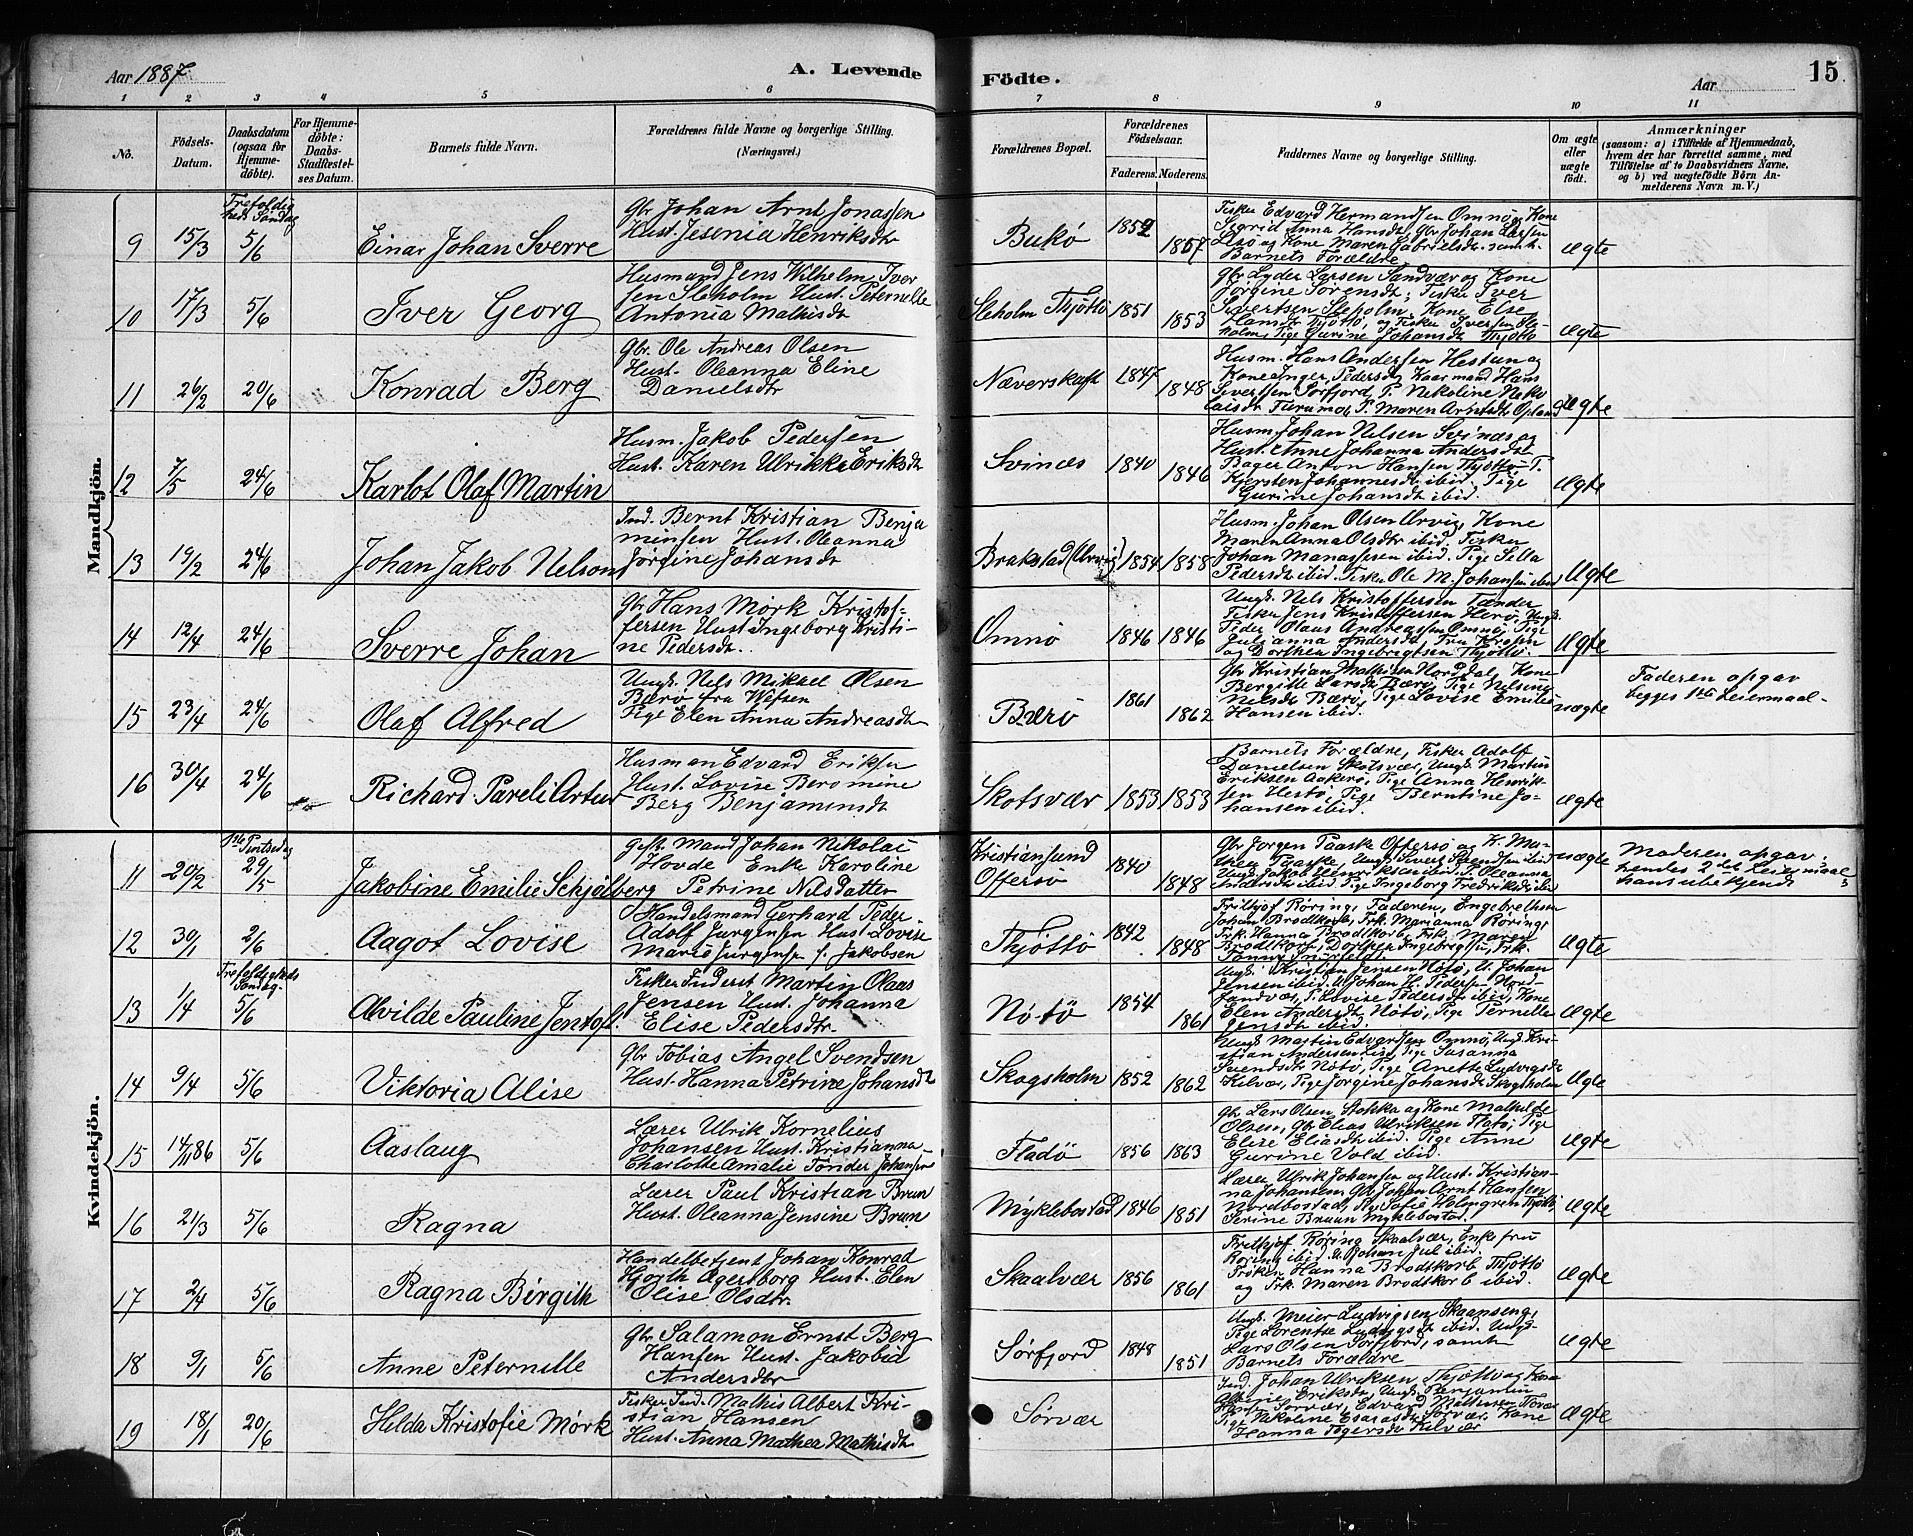 Aar 1887
A. Levende
Födte.
Aar
15
1 2 3 4 5 6 7 8 9 10 11
No.
Födsels-Datum.
Daabsdatum (ogsaa for Hjemmedöbte).
For Hjemmedöbte: Daabs-Stadfæstelses Datum.
Barnets fulde Navn.
Forældrenes fulde Navne og borgerlige Stilling. (Næringsvei.)
Forældrenes Bopæl.
Forældrenes Födselsaar.
Faderens. Moderens.
Faddernes Navne og borgerlige Stilling.
Om ægte eller uægte födt.
Anmærkninger
(saasom: a) i Tilfælde af Hjemmedaab, hvem der har forrettet samme, med Tilföielse af to Daabsvidners Navne, og b) ved uægtefödte Börn Anmelderens Navn m.V.)
Mandkjön.
Trefoldigheds Søndag
9 15/3 5/6 Einar Johan Sverre
Gbr Johan Arnt Jonassen
Hust. Jesenia Henriksdtr
Bukø 1852 1857
Fisker Edvard Hermandsen Omnø og Kone
Sigrid Anna Hansdtr, Gbr Johan Larsen
og Kone Maren Gabrielsdtr samt
Barnets Forældre
Ægte
10 17/3 5/6 Iver Georg
Husmand Jens Wilhelm Iver
sen Sleholm Hust. Peternelle
Antonia Mathisdtr
Sleholm Thjøttø 1851 1853
Gbr Lyder Larsen Sandvær og Kone
Jørgine Sørensdtr; Fisker Iver
Sivertsen Sleholm, Kone Else
Hansdtr Thjøttø, og Fisker Iversen Sle-
holm, Pige Gurine Johansdtr Thjøttø
Ægte
11 26/2 20/6 Konrad Berg
Gbr. Ole Andreas Olsen
Hust. Oleanna Eline
Danielsdtr
Næverskaft 1847 1848
Husm. Hans Andersen Hestun og
Kone Inger Pedersdtr Kaarmand Hans
Sivertsen Sørfjord, P. Nikoline Niko
laisdtr Furumo, P. Maren Arntsdtr Opland
Ægte
12 7/5 24/6 Karlot Olaf Martin
Husm. Jakob Pedersen
Hust. Karen Ulrikke Eriksdtr
Svinæs 1840 1846
Husm. Johan Nelsen Svinæs og
Hust. Anne Johanna Andersdtr
Bager Anton Hansen Thjøttø P.
Kjersten Johannesdtr ibid. Pige
Gurine Johansdtr ibid.
Ægte
13 19/2 24/6 Johan Jakob Nelson
Ind. Bernt Kristian Benja
minsen Hust. Oleanna
Jørgine Johansdtr
Brakstad (Urvig) 1854 1858
Husm. Johan Olsen Urvig, Kone
Maren Anna Olsdtr ibid. Fisker
Johan Manassesen ibid. Pige Sella
Pedersdtr ibid. Fisker Ole M. Johansen ibid
Ægte
14 12/4 24/6 Sverre Johan
Gbr Hans Mørk Kristof-
fersen Hust. Ingeborg Kristi-
ne Pedersdtr.
Omnø 1846 1846
Ungk. Nels Kristoffersen Tænder
Fisker Jens Kristoffersen Herø, Ungk.
Peder Olaus Andreassen Omnø, Pige
Julianna Andersdtr, Fru
og Dorthea Ingebrigtsen Thjøttø.
Ægte
15 23/4 24/6 Olaf Alfred
Ungk. Nels Mikael Olsen
Bærø fra Wefsen
Pige Elen Anna Andreasdtr
Bærø 1861 1862
Gbr Kristian Mathisen Nordal, Kone
Bergitte Larsdtr Bærø, Pige Nelsine
Nelsdtr Bærø, Pige Lovise Emilie
Hansen ibid.
uægte
Faderen opgav
begges 1ste Leiermaal
16 30/4 24/6 Richard Pareli Artur
Husman Edvard Eriksen
Hust. Lovise Beromine
Berg Benjaminsdtr
Skotsvær 1853 1853
Barnets Forældre, Fisker Adolf
Danielsen Skotsvær, Ungk. Martin
Eriksen Aakerø, Pige Anna Henrik-
sen Hestø, Pige Berntine Jo-
hansen ibid.
Ægte
Kvindekjön.
1ste Pintsedag
11 20/2 29/5 Jakobine Emilie Schjølberg
Gift Mand Johan Nikolai
Hovde Enke Karoline
Petrine Nilsdatter
Kristiansund
Offersø 1840 1848
Gbr. Jørgen Paaske Offersø og K. Ma-
thea Paaske, Ungk. Sivert ibid
Ungk. Jakob Henriksen ibid. P. Oleanna
Andersdtr ibid. Pige Ingeborg Fredriksdtr ibid
uægte
Moderen opgav
hendes 2det Leiermaal
hans ubekjendt
12 30/1 2/6 Aagot Lovise
Handelsmand Gerhard Peder
Adolf Jurgensen Hust. Lovise
Marie Jurgensen f. Jakobsen
Thjøttø 1842 1848
Frithjof Røring, Faderen, Engebrethsen
Johan Brodtkorb, Frk. Marianna Røring,
Frk. Hanna Brodtkorb, Frk. Maren
Brodtkorb, Dorthea Ingebrigtsen, Frk.
Ægte
Trefoldigheds Søndag.
13 1/4 5/6 Alvilde Pauline Jentoft
Fisker Inderst Martin Olaas
Jensen Hust. Johanna
Elise Pedersdtr.
Nøtø 1854 1861
Ungk. Kristian Jensen Nøtø, U. Johan
Jensen ibid. U. Johan H. Pedersen Nord-
sandvær, P. Lovise Pedersdtr ibid, Kone
Elen Andersdtr Nøtø, Pige Pernille
Jensdtr ibid.
Ægte
14 9/4 5/6 Viktoria Alise
Gbr Tobias Angel Svendsen
Hust. Hanna Petrine Johansdtr
Skogsholm 1852 1862
Ungk. Martin Edvardsen Omnø, Ungk. Kri-
stian Andersen, Pige Susanna
Svendsdtr Nøtø, Pige Anette Ludvigsdtr
Kilvær, Pige Jørgine Johansdtr Skogsholm
Ægte
15 14/11 86 5/6 Aaslaug
Lærer Ulrik Kornelius
Johansen Hust. Kristianna
Charlotte Amalie Tønder Johansen
Fladø 1856 1863
Gbr Lars Olsen Stokka og Kone Mathilde
Olsen, Gbr Elias Ulriksen Fladø, Pige
Elise Eliasdtr ibid. Pige Anne
Gurine Vold ibid.
Ægte
16 21/3 5/6 Ragna
Lærer Paul Kristian Bruun
Hust. Oleanna Jensine Bruun
Myklebostad 1846 1851
Lærer Ulrik Johansen og Hust. Kristian-
na Johansen, Gbr Johan Arnt Hansen
Nordbostad, Sofie Holmgren Thjøttø
Serine Bruun Myklebostad.
Ægte
17 2/4 5/6 Ragna Birgith
Handelbetjent Johan Konrad
Hjorth Agersborg Hust. Elen
Olise Olsdtr.
Skaalvær 1856 1861
Frithjof Røring Skaalvær, Enkefru
Røring ibid. U. Johan Jul ibid.
Frøken Hanna Brodtkorb Thjøttø
og Frk. Maren Brodtkorb ibid.
Ægte
18 9/1 5/6 Anne Peternille
Gbr. Salamon Ernst Berg
Hansen Hust. Jakobia
Andersdtr
Sørfjord 1848 1851
Ungk. Meier Ludvigsen Skaanseng,
Pige Lorentse Ludvigsdtr ibid. Ungk.
Lars Olsen Sørfjord, samt
Barnets Forældre
Ægte
19 18/1 20/6 Helda Kristofie Mørk
Fisker Ind. Mathis Albert Kri-
stian Hansen
Hust. Anna Mathea Mathisdtr
Sørvær
Ind. Johan Ulriksen Thjøttø og Kone
Eriksdtr, Ungk. Benjamin
Sørvær, Edvard Mathisen
Pige Nikoline Esaiasdtr Sørvær, Kone
Hanna Kilvær
Ægte